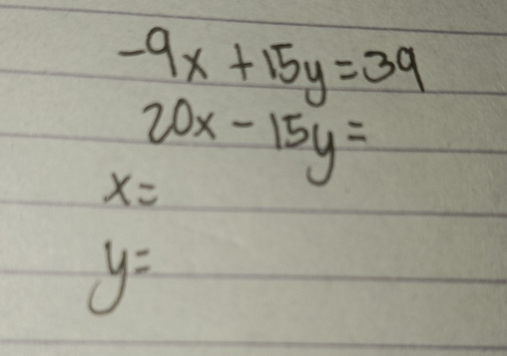 -9x + 15y = 39
20x - 15y =
x =
y =